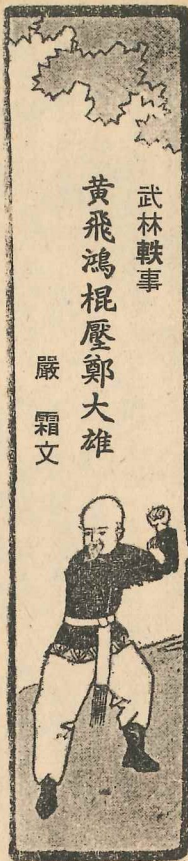 武林軼事
黃飛鴻棍壓鄭大雄
嚴霜文